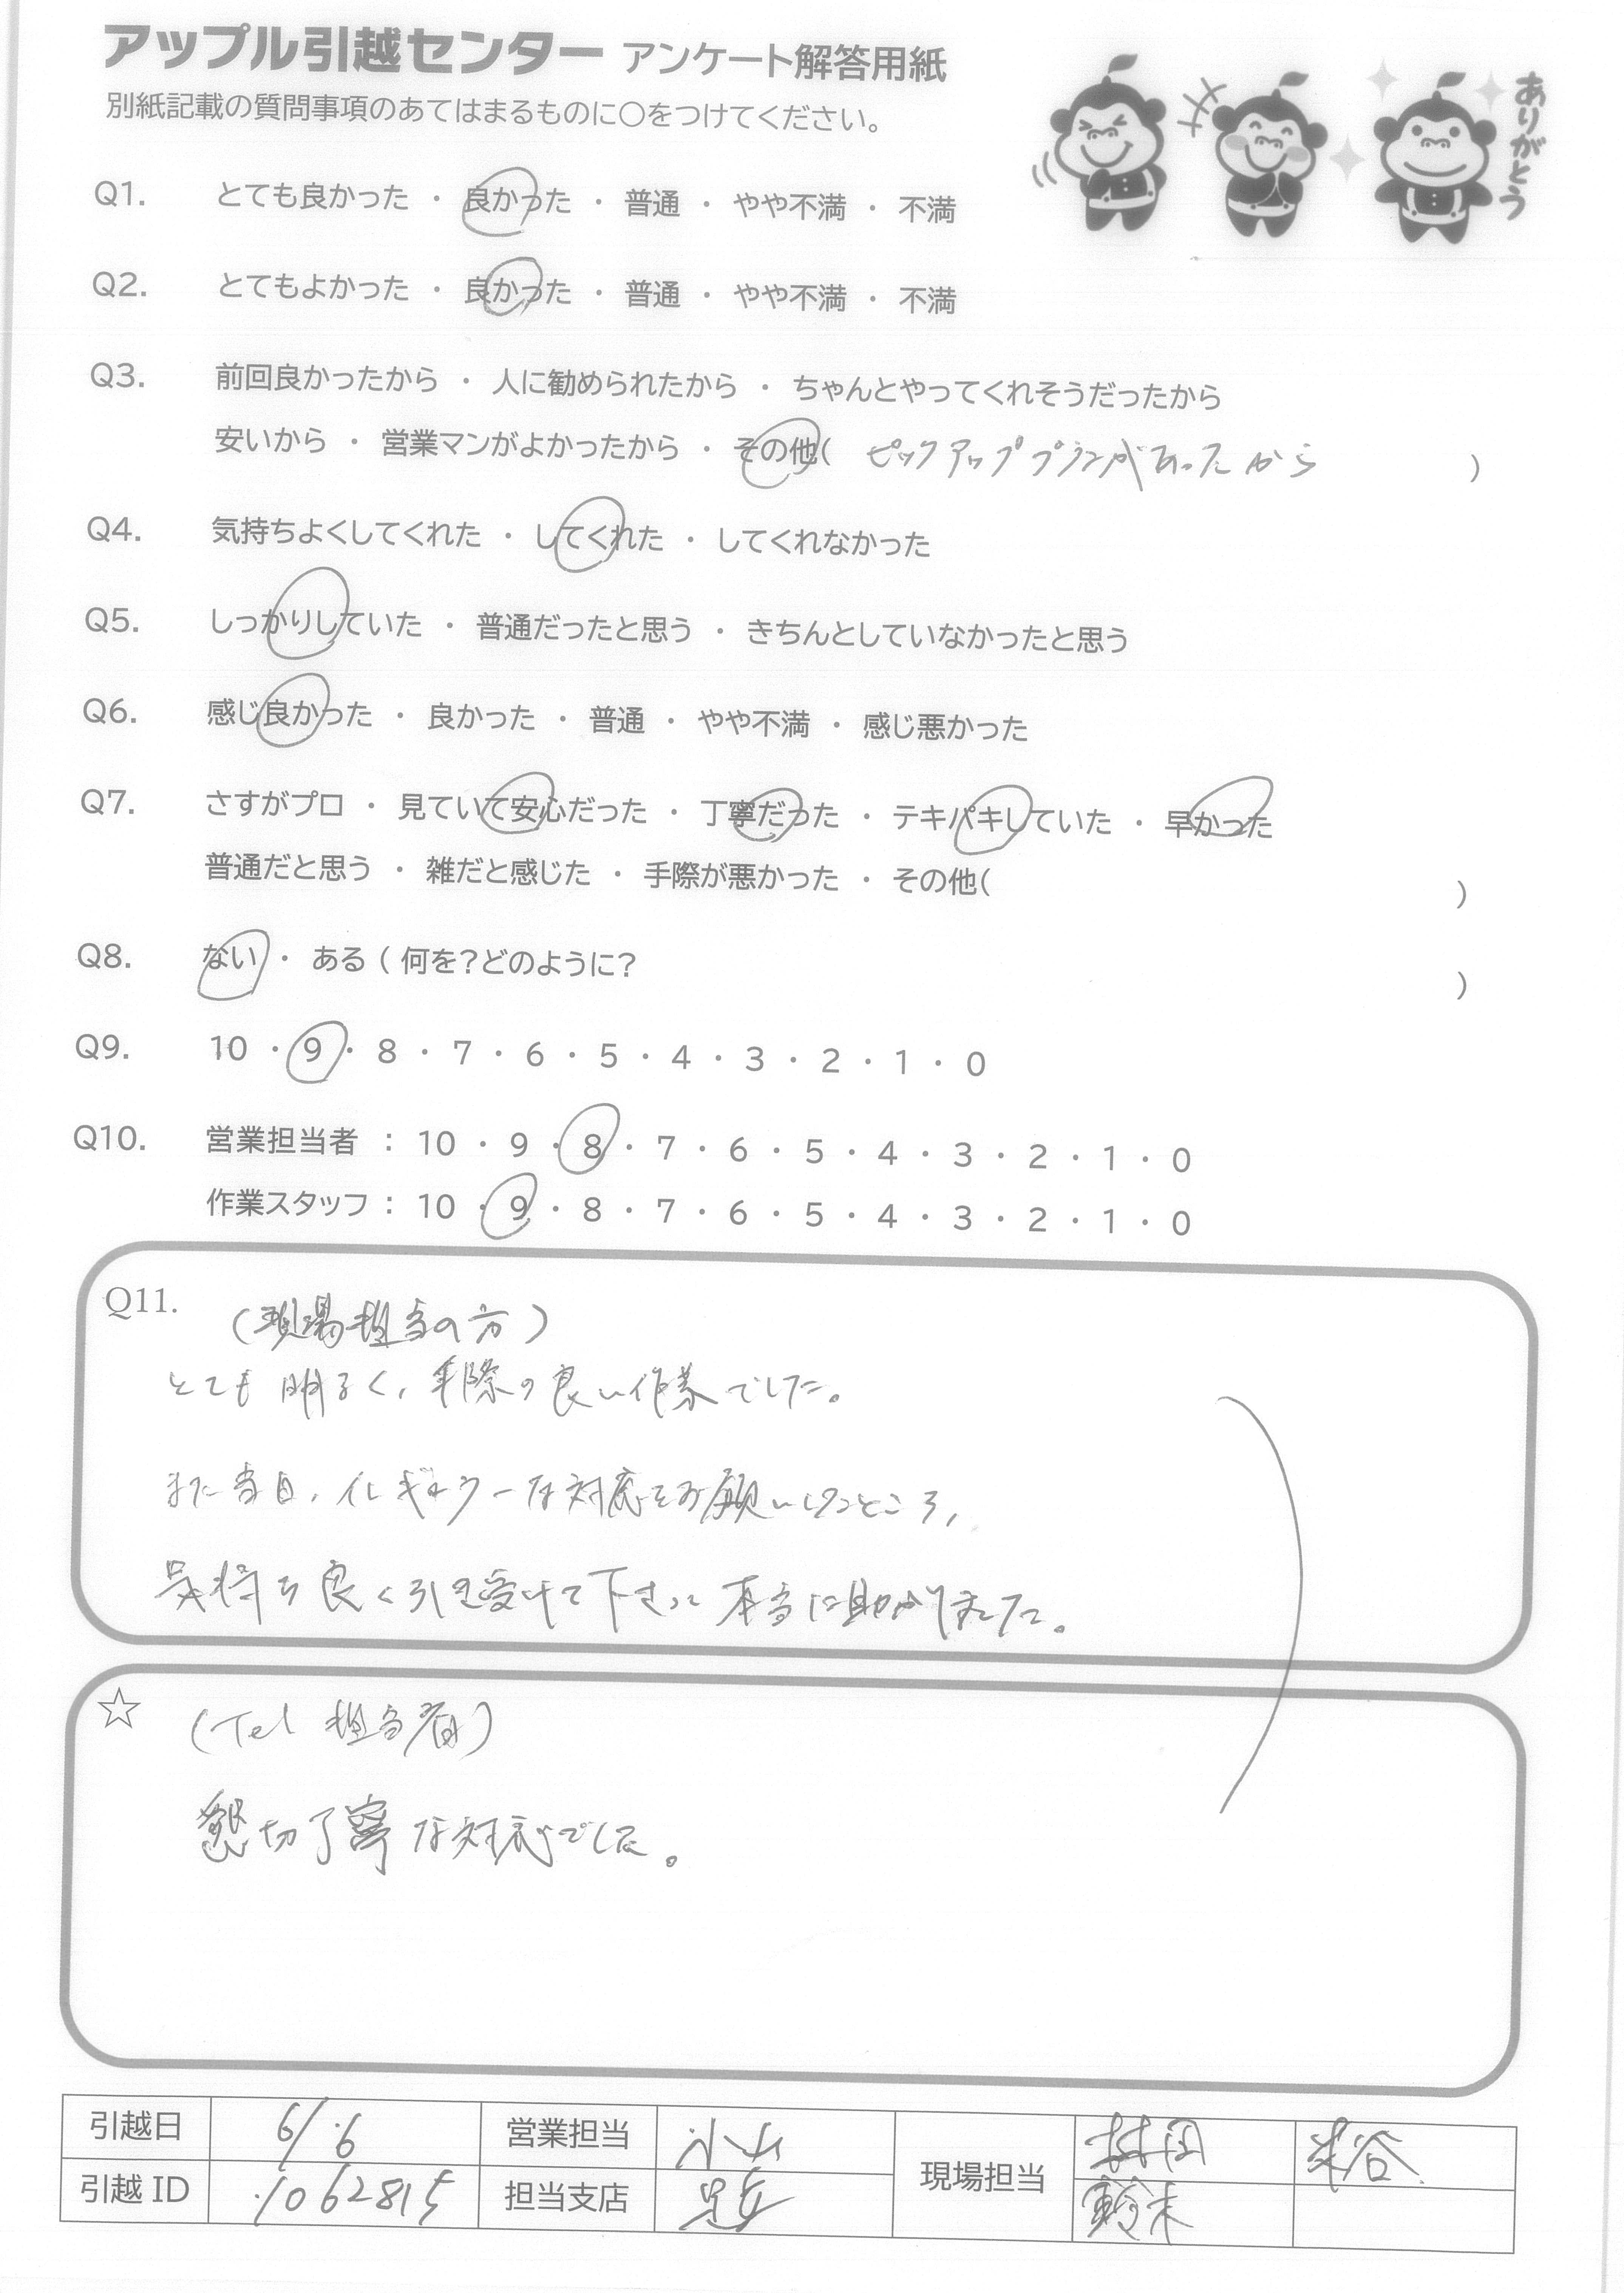 アップル引越センター アンケート解答用紙
別紙記載の質問事項のあてはまるものに○をつけてください。
ありがとう
Q1. とても良かった ・ 良かった ・ 普通 ・ やや不満 ・ 不満
Q2. とてもよかった ・ 良かった ・ 普通 ・ やや不満 ・ 不満
Q3. 前回良かったから ・ 人に勧められたから ・ ちゃんとやってくれそうだったから
安いから ・ 営業マンがよかったから ・ その他( ピックアッププランがあったから )
Q4. 気持ちよくしてくれた ・ してくれた ・ してくれなかった
Q5. しっかりしていた ・ 普通だったと思う ・ きちんとしていなかったと思う
Q6. 感じ良かった ・ 良かった ・ 普通 ・ やや不満 ・ 感じ悪かった
Q7. さすがプロ ・ 見ていて安心だった ・ 丁寧だった ・ テキパキしていた ・ 早かった
普通だと思う ・ 雑だと感じた ・ 手際が悪かった ・ その他( )
Q8. ない ・ ある ( 何を?どのように? )
Q9. 10 ・ 9 ・ 8 ・ 7 ・ 6 ・ 5 ・ 4 ・ 3 ・ 2 ・ 1 ・ 0
Q10. 営業担当者 : 10 ・ 9 ・ 8 ・ 7 ・ 6 ・ 5 ・ 4 ・ 3 ・ 2 ・ 1 ・ 0
作業スタッフ : 10 ・ 9 ・ 8 ・ 7 ・ 6 ・ 5 ・ 4 ・ 3 ・ 2 ・ 1 ・ 0
Q11. (現場担当の方)
とても明るく、手際の良い作業でした。
また当日、イレギュラーな対応をお願いしたところ、
気持ち良く引き受けて下さって本当に助かりました。
☆ (Tel 担当者)
懇切丁寧な対応でした。
引越日 6/6 営業担当 小山 現場担当 村田 米谷
引越 ID 1062815 担当支店 足立 鈴木